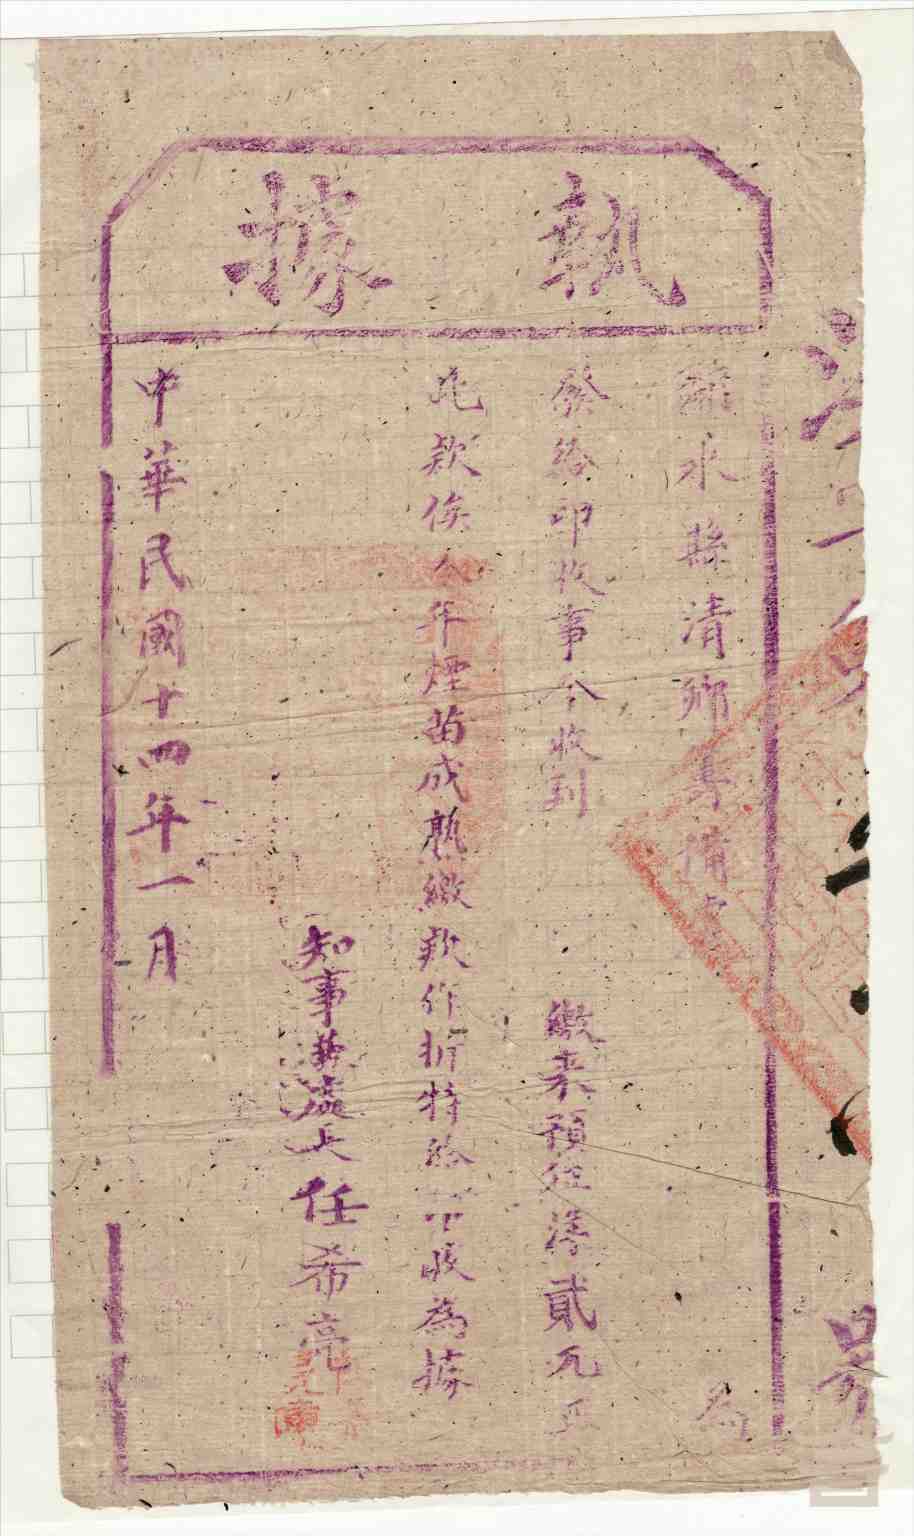 執據
水縣清鄉專備處 為
發給印收事今收到 繳來預征洋貳元正
此款俟今年煙苗成熟繳款作折特給印收為據
知事兼處長任希亮
中華民國十四年一月